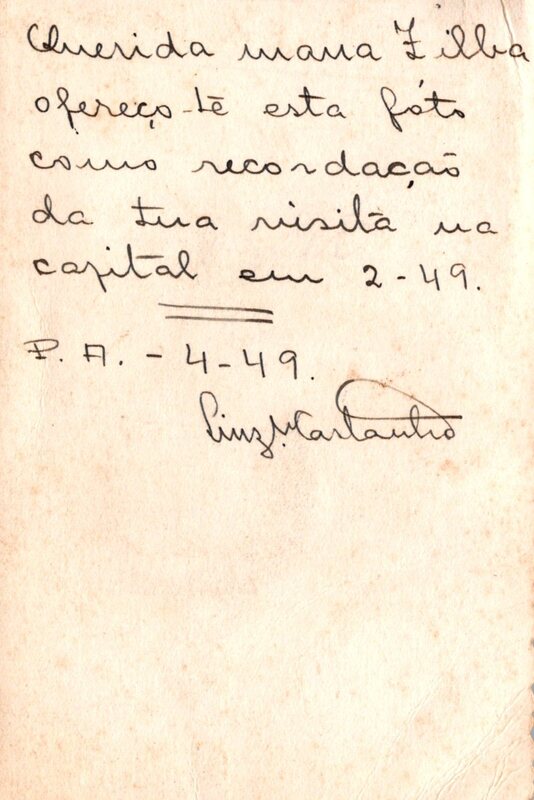 Querida mana Zilba
ofereço-te esta fóto
como recordação
da tua visita na
capital em 2-49.
P. A. - 4-49.
Luiz M. Castanho